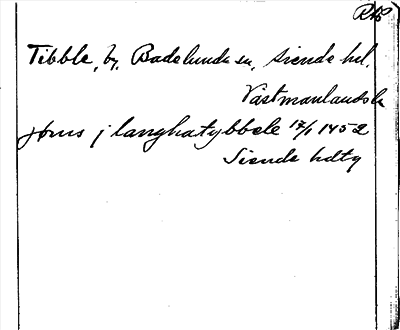 RAP
Tibble, by, Badelunda sn, Siende hd.
Västmanlands l.
jöns j langhatybbele 17/1 1452
Siende hdtg